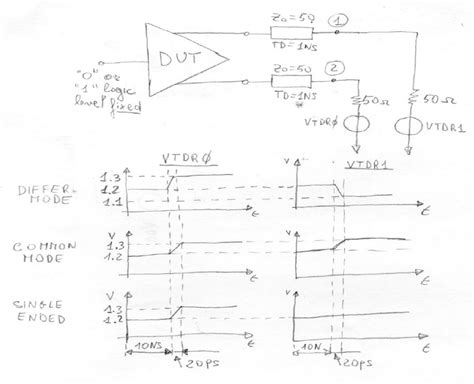 Zo=50
TD=1NS
1
DUT
"0" or
"1" logic
level fixed
Zo=50
TD=1NS
2
50Ω
VTDR0
50Ω
VTDR1
VTDR0
VTDR1
DIFFER.
MODE
V
1.3
1.2
1.1
t
V
t
COMMON
MODE
V
1.3
1.2
t
V
t
SINGLE
ENDED
V
1.3
1.2
t
V
t
10NS
20PS
10N
20PS